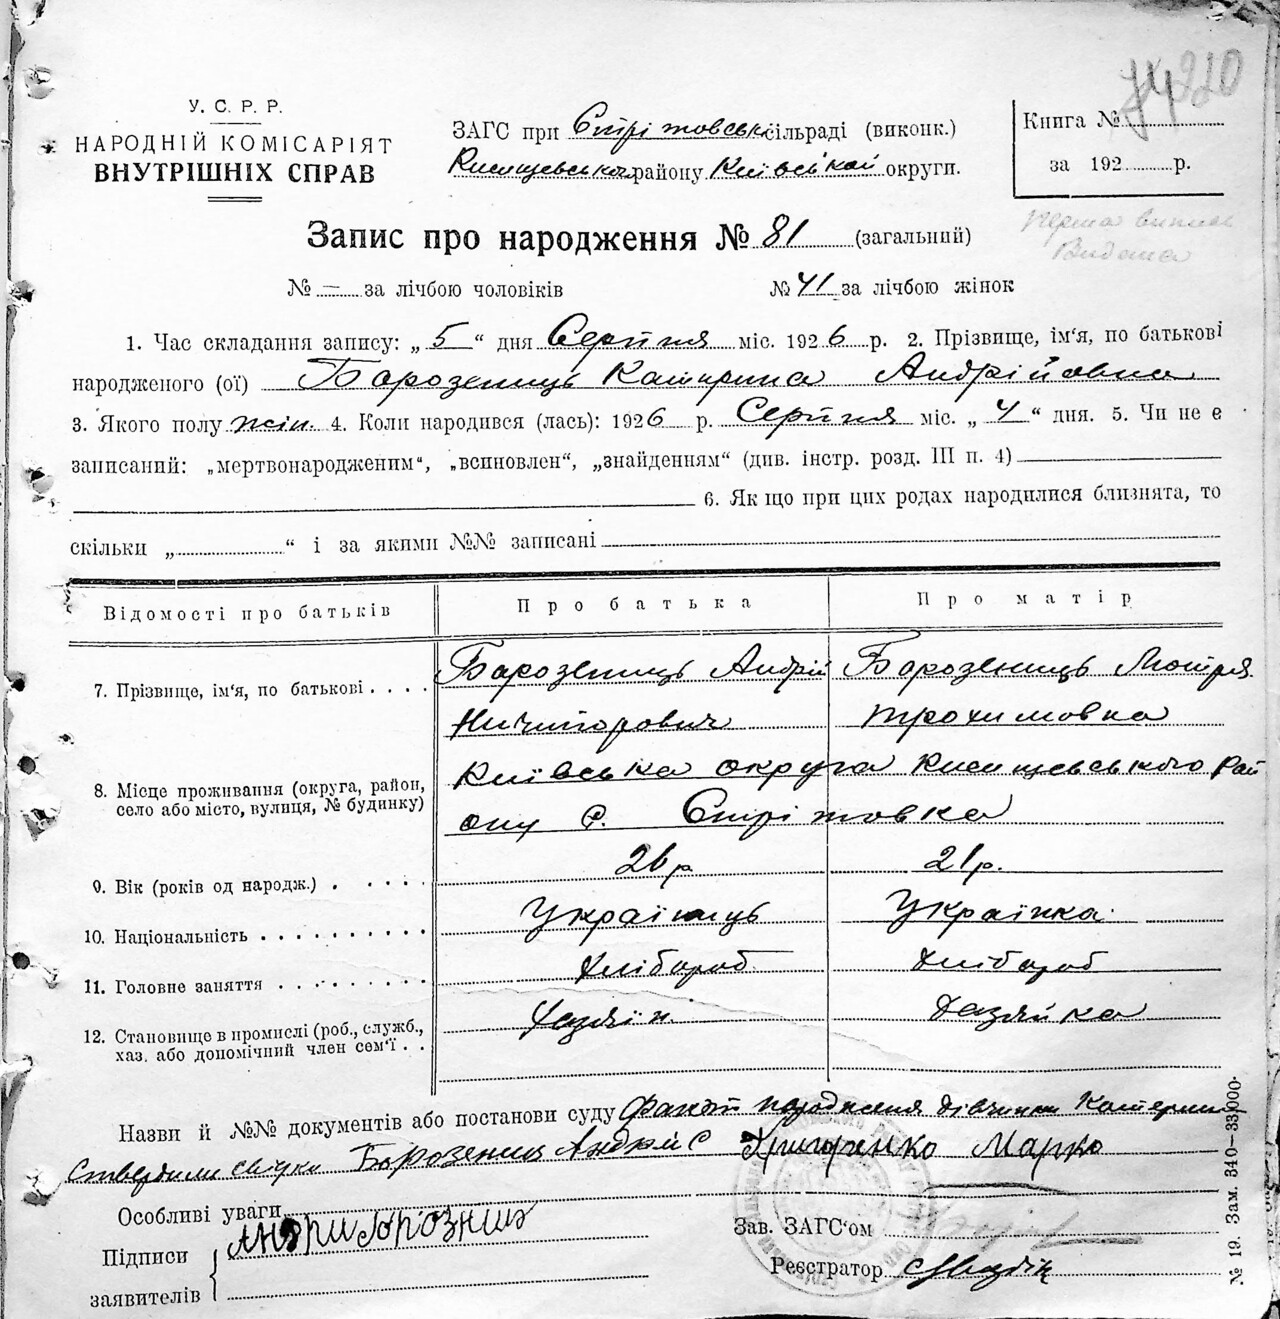 74 210
У. С. Р. Р.
НАРОДНІЙ КОМІСАРІЯТ
ВНУТРІШНІХ СПРАВ
ЗАГС при Стрітовськ сільраді (виконк.)
району Київської округи.
Книга №
за 192 р.
Перша випись
Видана
Запис про народження № 81 (загальний)
№ – за лічбою чоловіків № 41 за лічбою жінок
1. Час складання запису: „5“ дня Серпня міс. 1926 р. 2. Прізвище, ім‘я, по батькові
народженого (ої) Борозенець Катирина Андрійовна
3. Якого полу жін. 4. Коли народився (лась): 1926 р. Серпня міс. „4“ дня. 5. Чи не є
записаний: „мертвонародженим“, „всиновлен“, „знайденням“ (див. інстр. розд. III п. 4)
6. Як що при цих родах народилися близнята, то
скільки „ “ і за якими №№ записані
Відомості про батьків Про батька Про матір
7. Прізвище, ім‘я, по батькові Борозенець Андрій Борозенець Мотря
Ничипорович Трохимовна
8. Місце проживання (округа, район, село або місто, вулиця, № будинку) Київська округа
ону с. Стрітовка
9. Вік (років од народж.) 26 р 21 р.
10. Національність Українець Українка
11. Головне заняття Хлібороб Хлібороб
12. Становище в промислі (роб., служб., Хазяїн Хазяйка
хаз. або допомічний член сем‘ї
Назви й №№ документів або постанови суду Факт народження дівчинки Катерини
ствердили свідки Борозенец Андрій С Григоренко Марко
Особливі уваги
Підписи
заявителів
Зав. ЗАГС‘ом
Реєстратор
№ 19. Зам. 340—33.000·